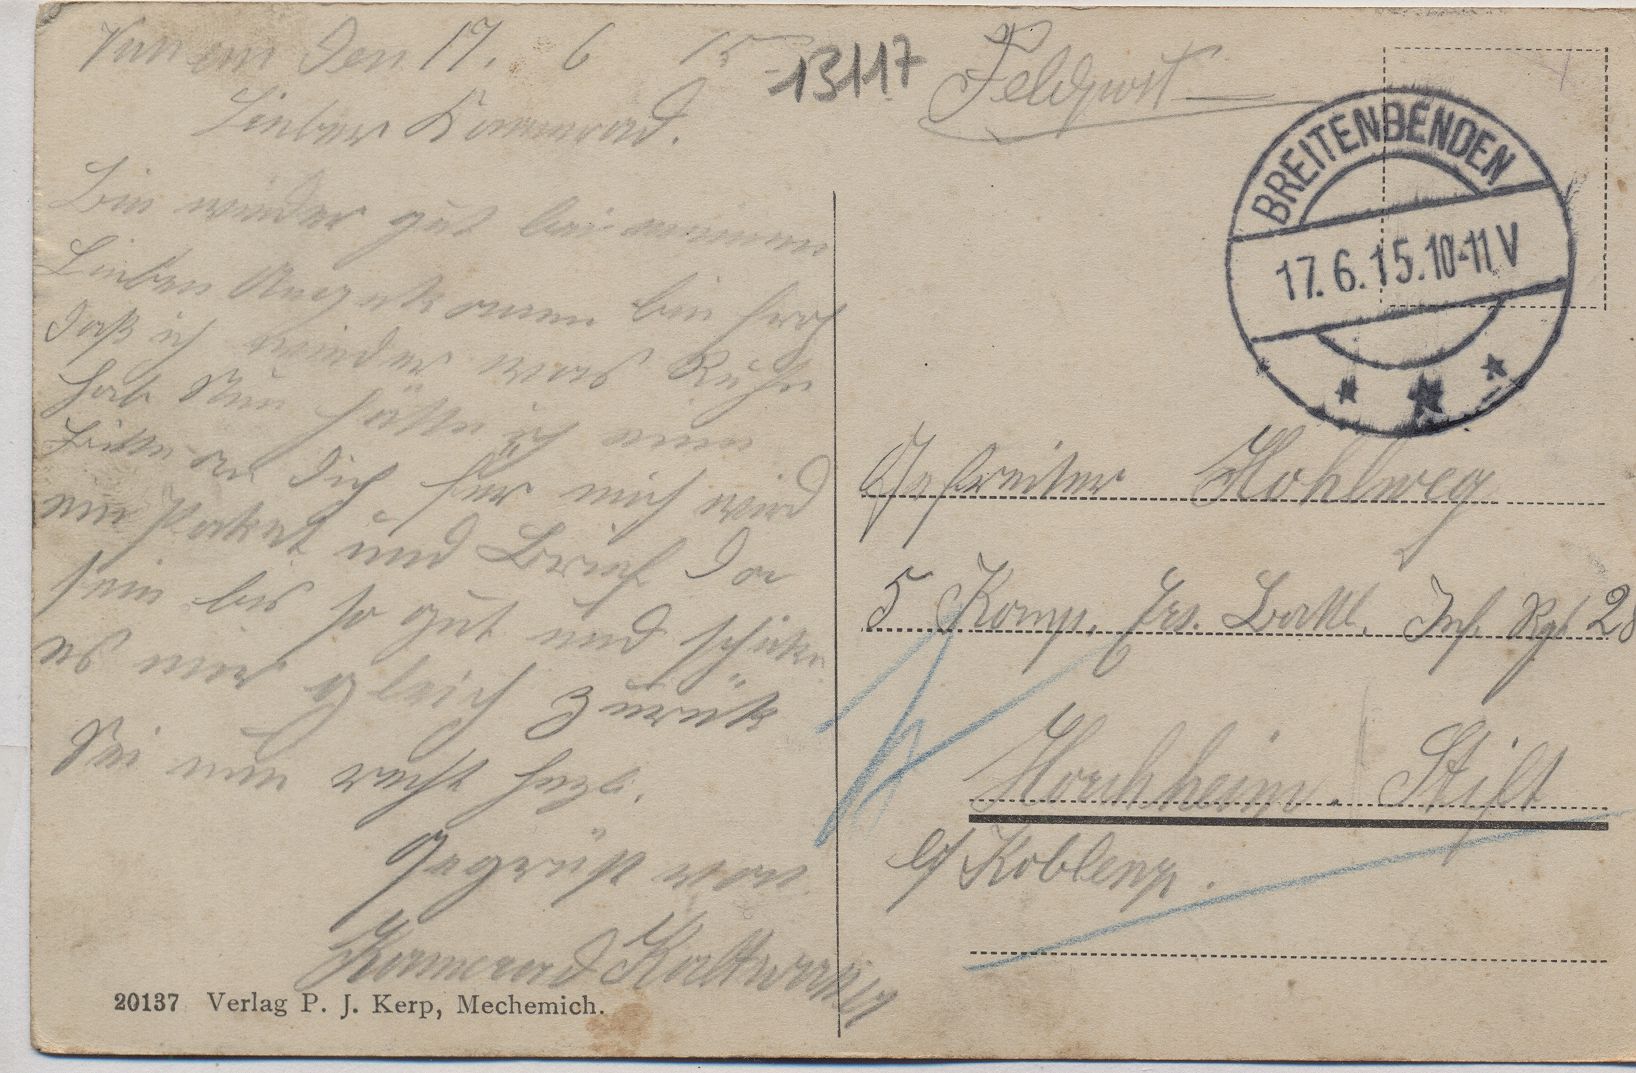 den 17. 6 15
13117
Feldpost
Lieber Kammrad.
Bin wieder gut bei meinen
Lieben bin froh
daß ich wieder was Ruhe
hab Nun hätte ich eine
Bitte an dich für mich wird
ein Paket und Brief da
sein bis so gut und schike
es mir gleich zurük
Sei nun recht herzl.
Gegrüßt von
Kamerad
20137 Verlag P. J. Kerp, Mechemich.
BREITENBENDEN
17.6.15.10-11V
Gefreiter Hohlweg
5 Komp. Ers. Batl. Inf. Rgt 28
Horchheim. Stift
b/ Koblenz.